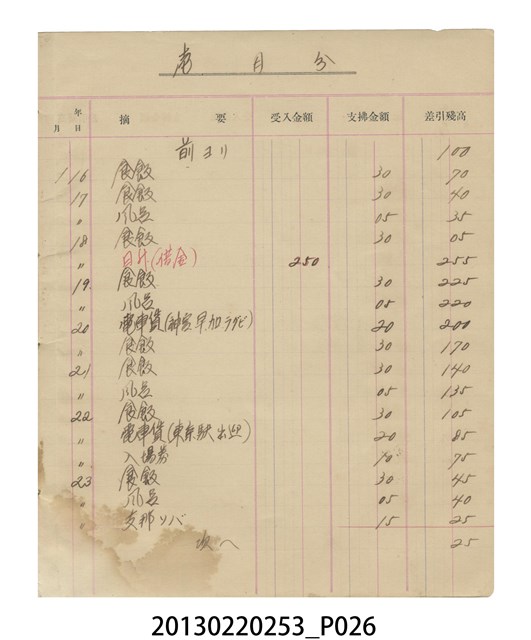 壱月分
年 月 日 摘要 受入金額 支拂金額 差引残高
前ヨリ 100
1 16 食飯 30 70
17 食飯 30 40
〃 風呂 05 35
18 食飯 30 05
〃 (借金) 250 255
19 食飯 30 225
〃 風呂 05 220
20 電車賃 20 200
〃 食飯 30 170
21 食飯 30 140
〃 風呂 05 135
22 食飯 30 105
〃 電車賃(東京駅 出迎) 20 85
〃 入場券 10 75
23 食飯 30 45
〃 風呂 05 40
〃 支那ソバ 15 25
次へ 25
20130220253_P026